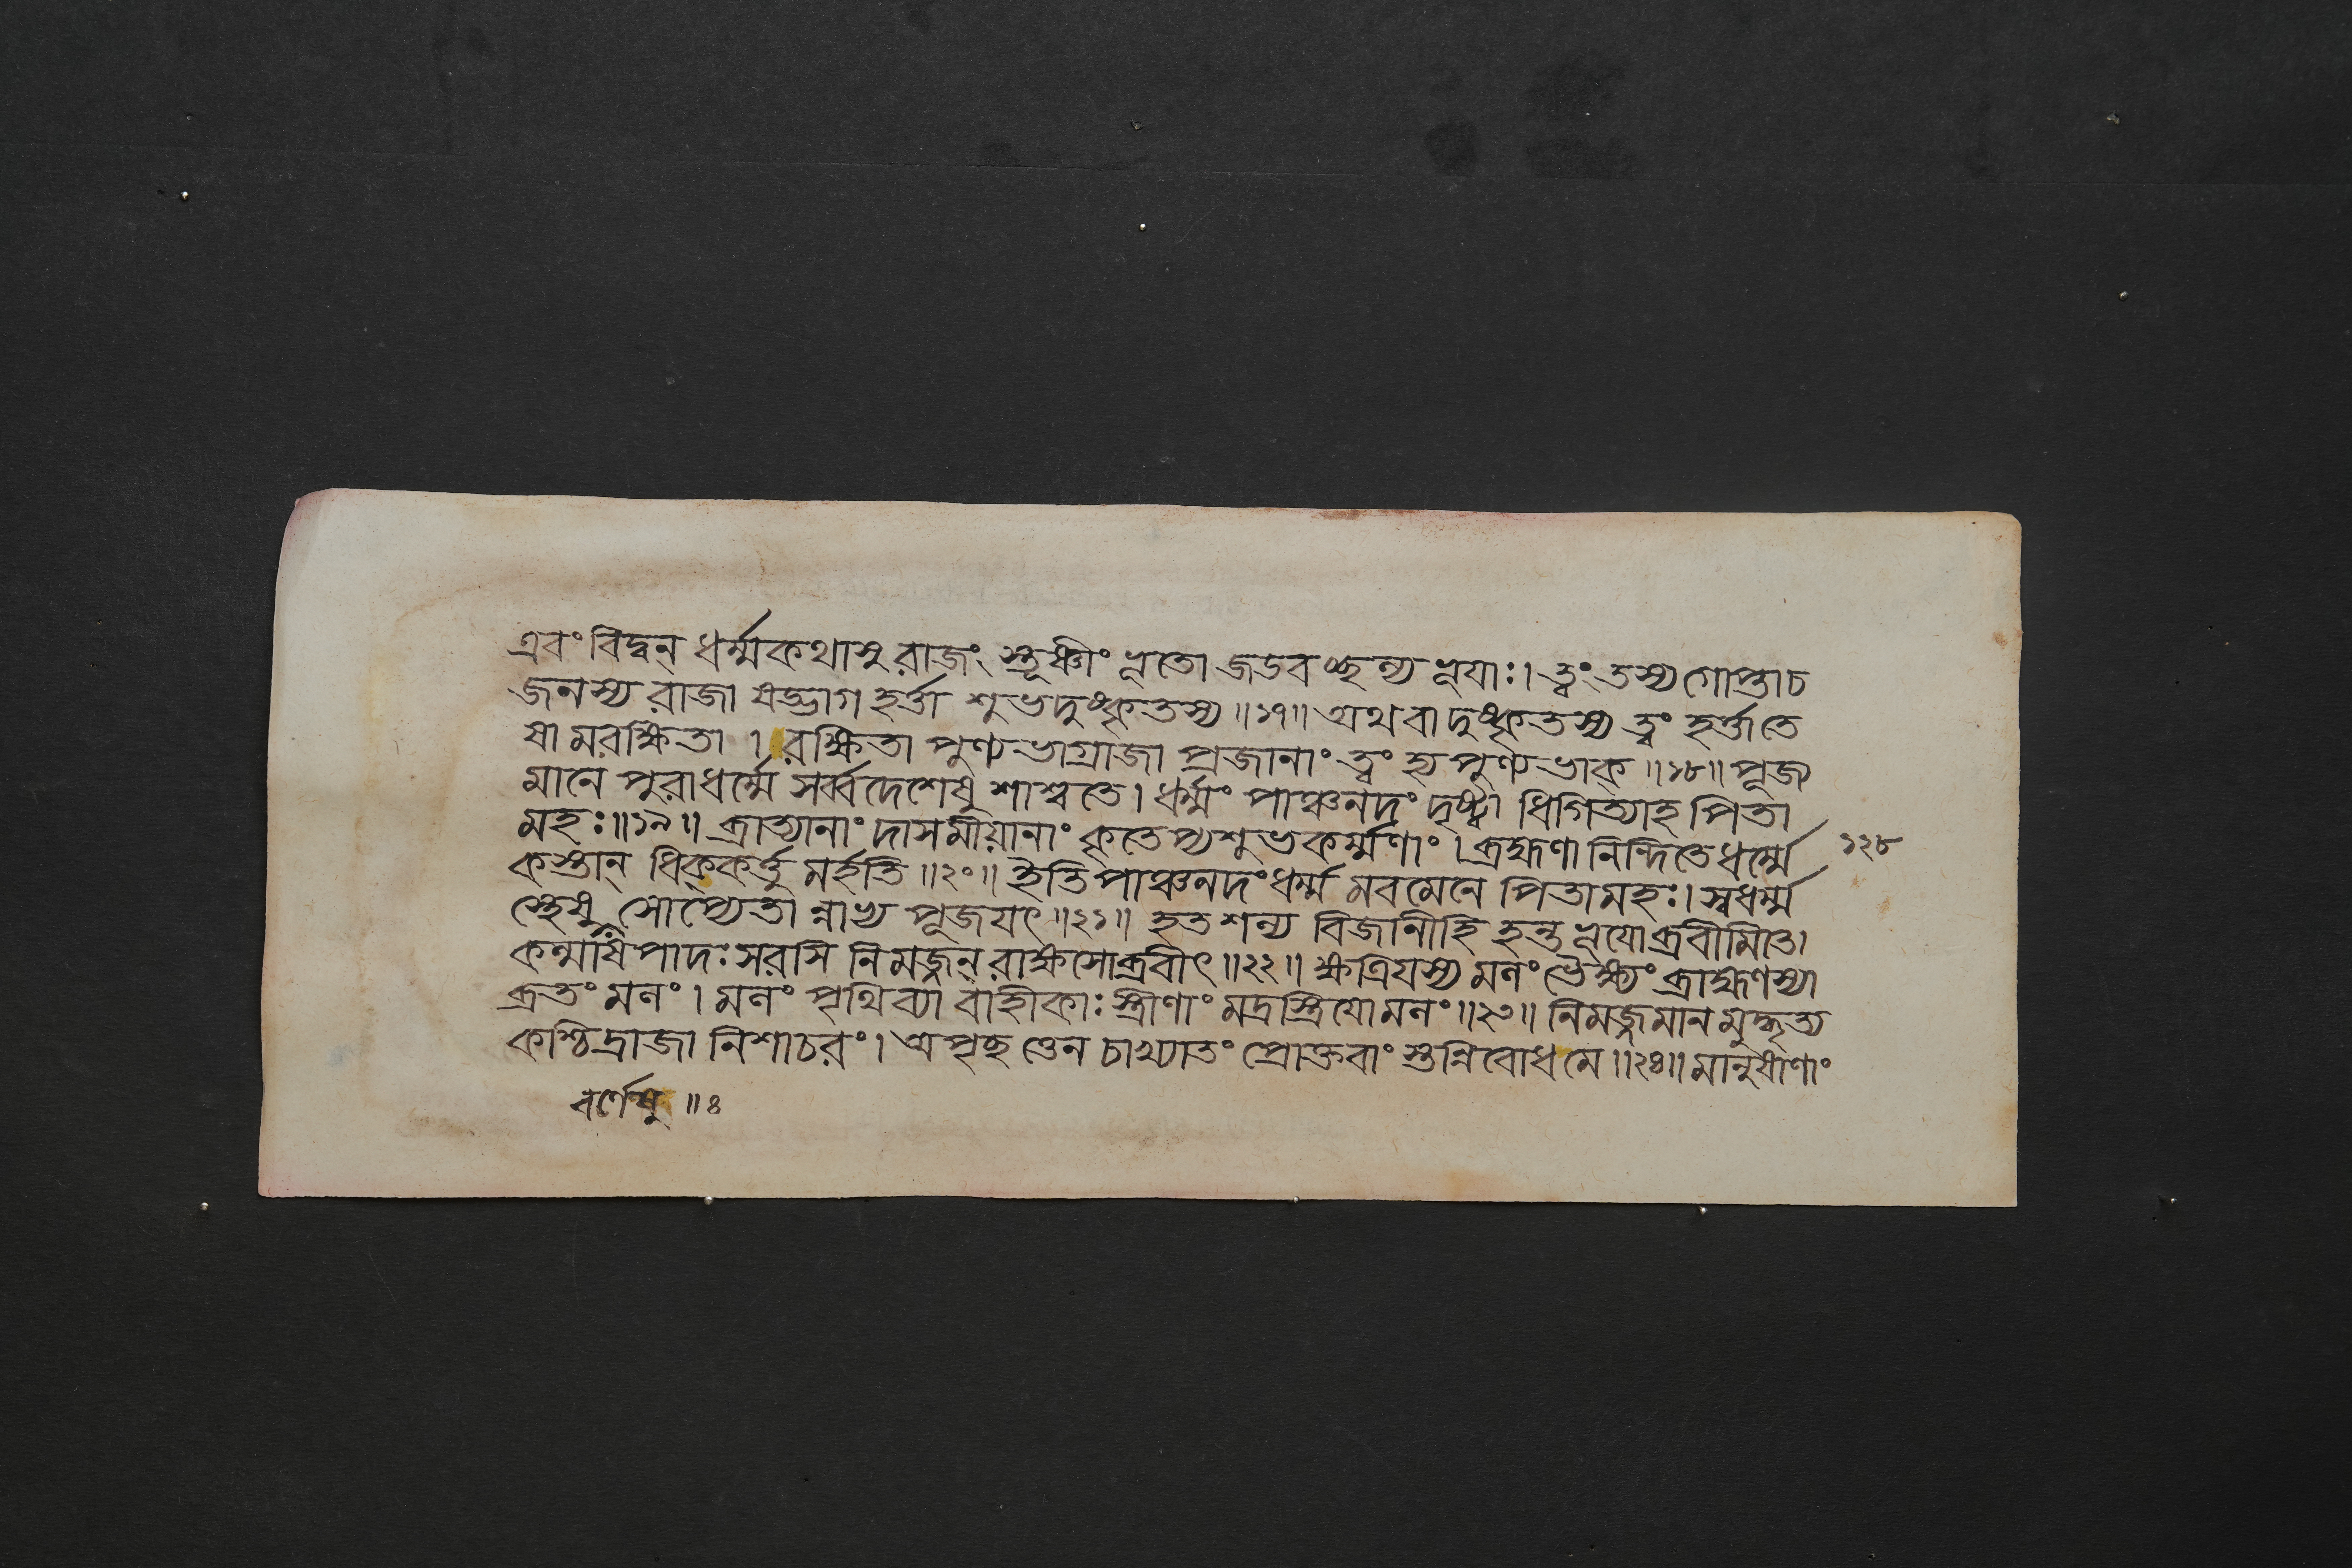 এবং বিদ্বন্ ধর্ম্মকথাসু রাজং স্তূষ্ণীং ভূতো জডবচ্ছল্য ভূযাঃ। ত্বং তস্য গোপ্তাচ
জনস্য রাজা ষড্ভাগ হর্ত্তা শুভদুষ্কৃতস্য॥১৭॥ অথবা দুষ্কৃতস্য ত্বং হর্ত্তাতে
ষামরক্ষিতা । রক্ষিতা পুণ্যভাগ্রাজা প্রজানাং ত্বং হ্যপুণ্যভাক্॥১৮॥ পূজ্য
মানে পুরাধর্ম্মে সর্ব্বদেশেষু শাশ্বতে। ধর্ম্মং পাঞ্চনদং দৃষ্ট্বা ধিগিত্যাহ পিতা
মহঃ॥১৯॥ ব্রাত্যানাং দাসমীয়ানাং কৃতেপ্যশুভকর্ম্মণাং। ব্রহ্মণা নিন্দিতে ধর্ম্মে
১২৮
কস্তান্ ধিক্কর্ত্তু মর্হতি॥২০॥ ইতি পাঞ্চনদং ধর্ম্ম মবমেনে পিতামহঃ। স্বধর্ম্ম
স্থেষু সোপ্যেতা ন্নাভ্য পূজযৎ॥২১॥ হতশল্য বিজানীহি হন্ত ভূযোব্রবীমিতে।
কল্মাষপাদঃ সরসি নিমজ্জন্ রাক্ষসোব্রবীৎ॥২২॥ ক্ষত্রিযস্য মলং ভৈক্ষ্যং ব্রাহ্মণস্যা
ব্রতং মলং। মলং পৃথিব্যা বাহীকাঃ স্ত্রীণাং মদ্রস্ত্রিযোমলং॥২৩॥ নিমজ্জমান মুদ্ধৃত্য
কশ্চিদ্রাজা নিশাচরং। অপৃচ্ছ ত্তেন চাখ্যাতং প্রোক্তবাং স্তন্নিবোধ মে॥২৪॥ মানুষাণাং
বর্ণেষু॥৪